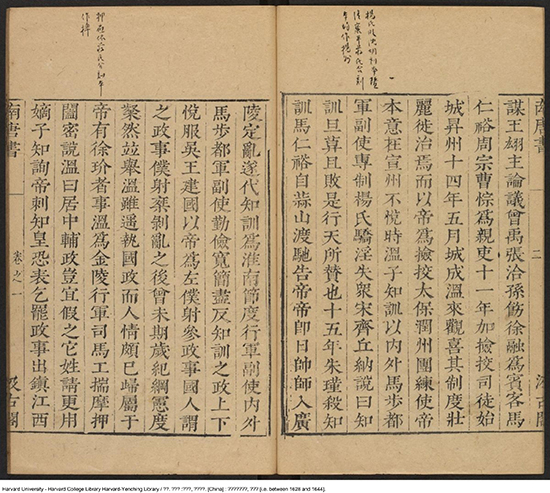 南唐書
二
汲古閣
謀王翃主論議曾禹張洽孫飭徐融爲賓客馬
仁裕周宗曹悰爲親吏十一年加撿挍司徒始
城昇州十四年五月城成溫來觀喜其制度壯
麗徙治焉而以帝爲撿挍太保潤州團練使帝
本意在宣州不悅時溫子知訓以内外馬步都
軍副使專制楊氏驕淫失衆宋齊丘納說曰知
訓旦暮且敗是行天所贊也十五年朱瑾殺知
訓馬仁裕自蒜山渡馳告帝帝卽日帥師入廣
陵定亂遂代知訓爲淮南節度行軍副使内外
馬步都軍副使勤儉寬簡盡反知訓之政上下
悅服吳王建國以帝爲左僕射參政事國人謂
之政事僕射承剝亂之後曾未期歲紀綱憲度
粲然並舉溫雖遥執國政而人情頗已歸屬于
帝有徐玠者事溫爲金陵行軍司馬工揣摩押
闔密說溫曰居中輔政豈宜假之它姓請更用
嫡子知詢帝刺知皇恐表乞罷政事出鎮江西
南唐書
卷之一
汲古閣
Harvard University - Harvard College Library Harvard-Yenching Library / ??. ???· ???, ????. [China] : ???????, ??? [i.e. between 1628 and 1644].